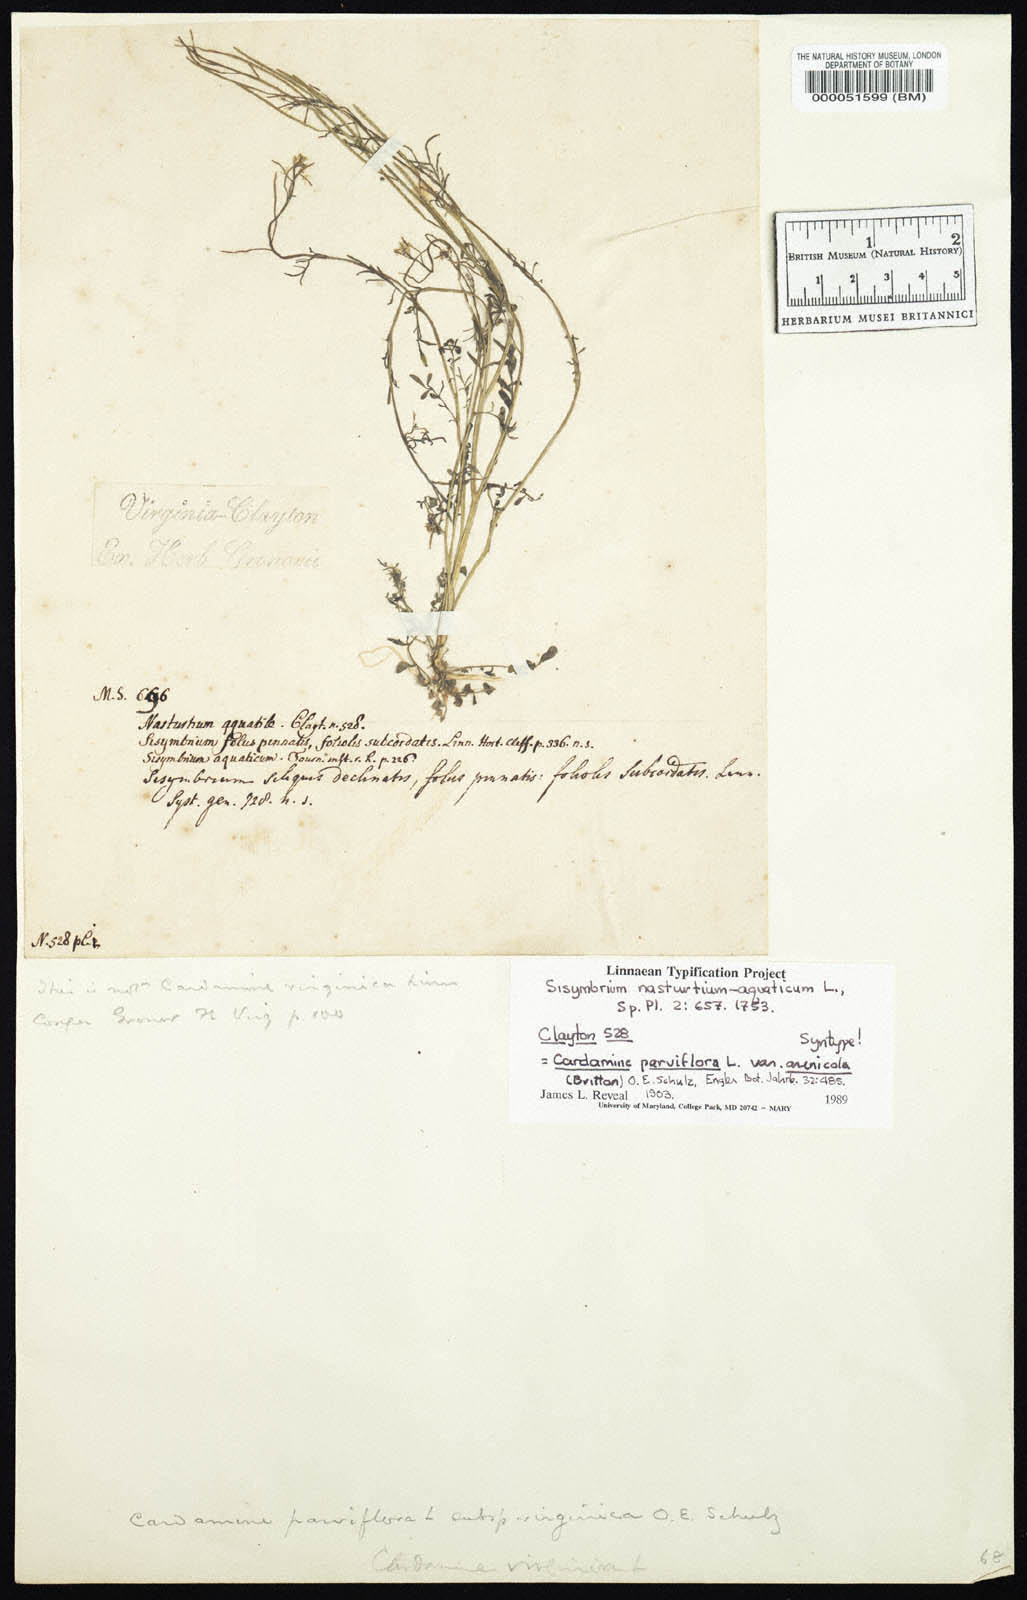 THE NATURAL HISTORY MUSEUM, LONDON
DEPARTMENT OF BOTANY
000051599 (BM)
1 2
BRITISH MUSEUM (NATURAL HISTORY)
1 2 3 4 5
HERBARIUM MUSEI BRITANNICI
Virginia-Clayton
Ex. Herb Gronovii
M.S. 696
Nasturtium aquatile. Clayt. n. 528.
Sisymbrium foliis pinnatis, foliolis subcordatis. Linn. Hort. Cliff. p. 336. n. 1.
Sisymbrium aquaticum. Tourn. inst. r. h. p. 226.
Sisymbrium siliquis declinatis, foliis pinnatis: foliolis subcordatis. Linn.
Syst. gen. 728. n. 1.
N. 528 pl. 2.
This is not Cardamine virginica Linn
Confer Gronov Fl Virg p. 100
Linnaean Typification Project
Sisymbrium nasturtium-aquaticum L.,
Sp. Pl. 2: 657. 1753.
Clayton 528 Syntype!
= Cardamine parviflora L. var. arenicola
(Britton) O. E. Schulz, Engler Bot. Jahrb. 32: 485.
James L. Reveal 1903. 1989
University of Maryland, College Park, MD 20742 – MARY
Cardamine parviflora L subsp. virginica O. E. Schulz
Cardamine virginica L
68